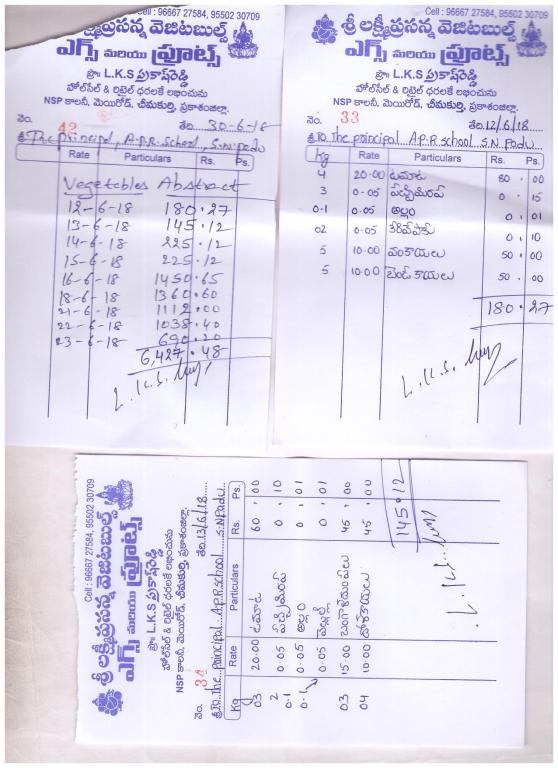 Cell : 96667 27584, 95502 30709
శ్రీ లక్ష్మీప్రసన్న వెజిటబుల్స్
ఎగ్స్ మరియు ఫ్రూట్స్
ప్రొ॥ L.K.S ప్రకాష్‌రెడ్డి
హోల్‌సేల్ & రిటైల్ ధరలకే లభించును
NSP కాలనీ, మెయిన్‌రోడ్, చీమకుర్తి, ప్రకాశంజిల్లా.
నెం. 42 తేది. 30-6-18
శ్రీ The Principal, A.P.R. School, S.N. padu
Rate Particulars Rs. Ps.
Vegetables Abstract
12-6-18 180.27
13-6-18 145.12
14-6-18 225.12
15-6-18 225.12
16-6-18 1450.65
18-6-18 1360.60
21-6-18 1112.00
22-6-18 1038.40
23-6-18 690.20
6,427.48
L.K.S.
Cell : 96667 27584, 95502 30709
శ్రీ లక్ష్మీప్రసన్న వెజిటబుల్స్
ఎగ్స్ మరియు ఫ్రూట్స్
ప్రొ॥ L.K.S ప్రకాష్‌రెడ్డి
హోల్‌సేల్ & రిటైల్ ధరలకే లభించును
NSP కాలనీ, మెయిన్‌రోడ్, చీమకుర్తి, ప్రకాశంజిల్లా.
నెం. 33 తేది. 12/6/18
శ్రీ To. The principal A.P.R school S.N. Padu
Kg Rate Particulars Rs. Ps.
4 20.00 టమాట 80.00
3 0.05 పచ్చిమిరప 0.15
0.1 0.05 అల్లం 0.01
02 0.05 కరివేపాకు 0.10
5 10.00 వంకాయలు 50.00
5 10.00 బెండకాయలు 50.00
180.27
L.K.S.
Cell : 96667 27584, 95502 30709
శ్రీ లక్ష్మీప్రసన్న వెజిటబుల్స్
ఎగ్స్ మరియు ఫ్రూట్స్
ప్రొ॥ L.K.S ప్రకాష్‌రెడ్డి
హోల్‌సేల్ & రిటైల్ ధరలకే లభించును
NSP కాలనీ, మెయిన్‌రోడ్, చీమకుర్తి, ప్రకాశంజిల్లా.
నెం. 34 తేది. 13/6/18
శ్రీ To. The principal A.P.R school S.N Padu
Kg Rate Particulars Rs. Ps.
03 20.00 టమాట 60.00
2 0.05 పచ్చిమిరప 0.10
0.1 0.05 అల్లం 0.01
0.1 0.05 వెల్లుల్లి 0.01
03 15.00 బంగాళదుంపలు 45.00
04 10.00 దోశకాయలు 45.00
145.12
L.K.S.